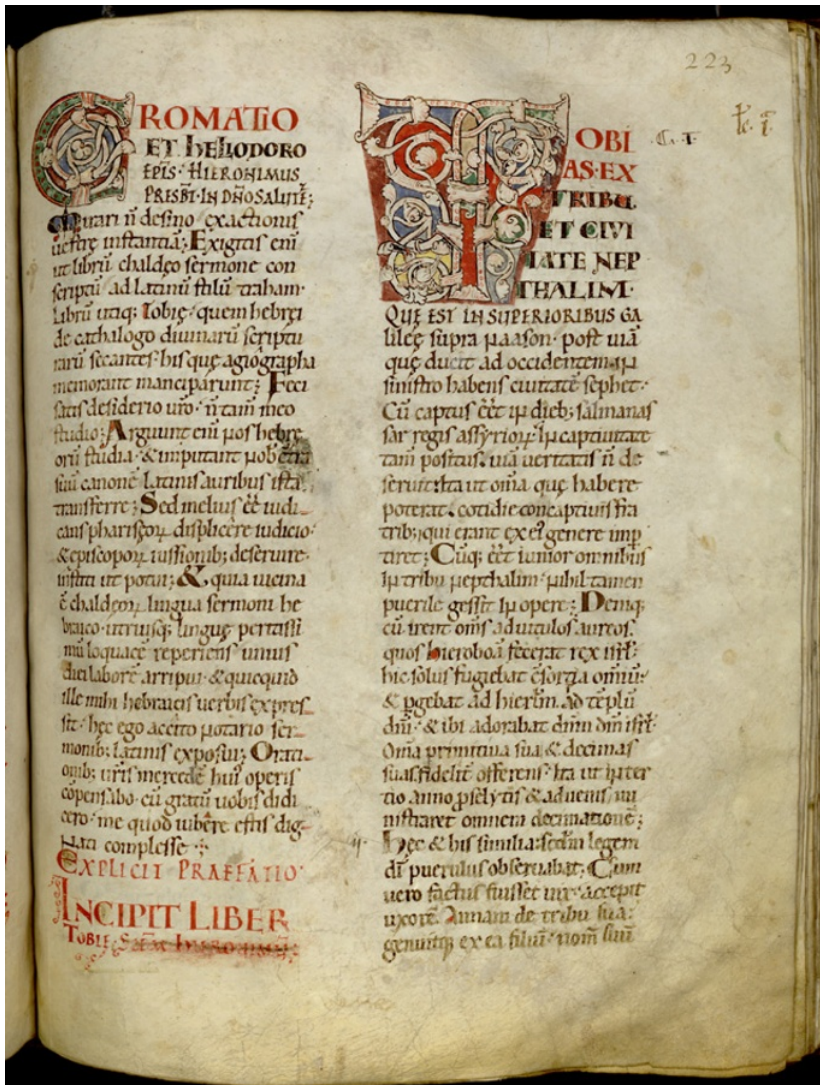 223
CROMATIO
ET hELIODORO
EPIS· HIERONIMUS
PRESBT· IN DÑO SALUTĒ;
Mirari ñ desino exactionis
uestrę instantiā; Exigitis enī
ut librū chaldęo sermone con
scriptū ad latinū stilū traham·
librū utiq; Tobię· quem hebręi
de cathalogo diuinarū scriptu
rarū secantes· his quę agiographa
memorant manciparunt; Feci
satis desiderio ur̄o· ñ tam̄ meo
studio; Arguunt enī nos hebrę
orū studia· & imputant nob
suū canonē latinis auribus ista
transferre; Sed melius eē̄ iudi
cans pharisęoꝝ displicere iudicio·
& episcopoꝝ iussionib; deseruire·
institi ut potui; & quia uicina
ē chaldęoꝝ lingua sermoni he
braico· utriusq; linguę peritissi
mū loquacē reperiens unius
diei laborē arripui· & quicquid
ille mihi hebraicis uerbis expres
sit· hęc ego accito notario ser
monib; latinis exposui; Orati
onib; uris mercedē hui' operis
cōpensabo· cū gratū uobis didi
cero· me quod iubere estis dig
nati complesse·;
EXPLICIT PRAEFATIO·
INCIPIT LIBER
TOBIE
TOBI
AS· EX
TRIBU
ET CIVI
TATE NEP
THALIM·
QUĘ EST IN SUPERIORIBUS GA
lileę supra naason· post uiā
quę ducit ad occidentem· in
sinistro habens ciuitatē sephet·
Cū captus eēt in dieb; salmanas
sar regis assyrioꝝ· In captiuitate
tam̄ positus· uiā ueritatis ñ de
seruit· ita ut om̄ia quę habere
poterat· cotidie concaptiuis fra
trib; qui erant ex ei' genere imp
tiret; Cūq; eēt iunior omnibus
in tribu nepthalim· nihil tamen
puerile gessit in opere; Deniq;
cū irent om̄s ad uitulos aureos·
quos hieroboā fecerat rex isrl̄·
hic solus fugiebat cōsortia omniū·
& pgebat ad hierl̄m· ad tēplū
dn̄i· & ibi adorabat dn̄m dm̄ isrl̄·
Om̄ia primitiua sua & decimas
suas fidelit̄ offerens· Ita ut in ter
tio anno pselytis & aduenis mi
nistraret omnem decimatione;
Hęc & his similia· sedm̄ legem
dī puerulus obseruabat; Cum
uero factus fuisset uir· accepit
uxorē Annam de tribu sua·
genuitq; ex ea filiū· nom̄ suū